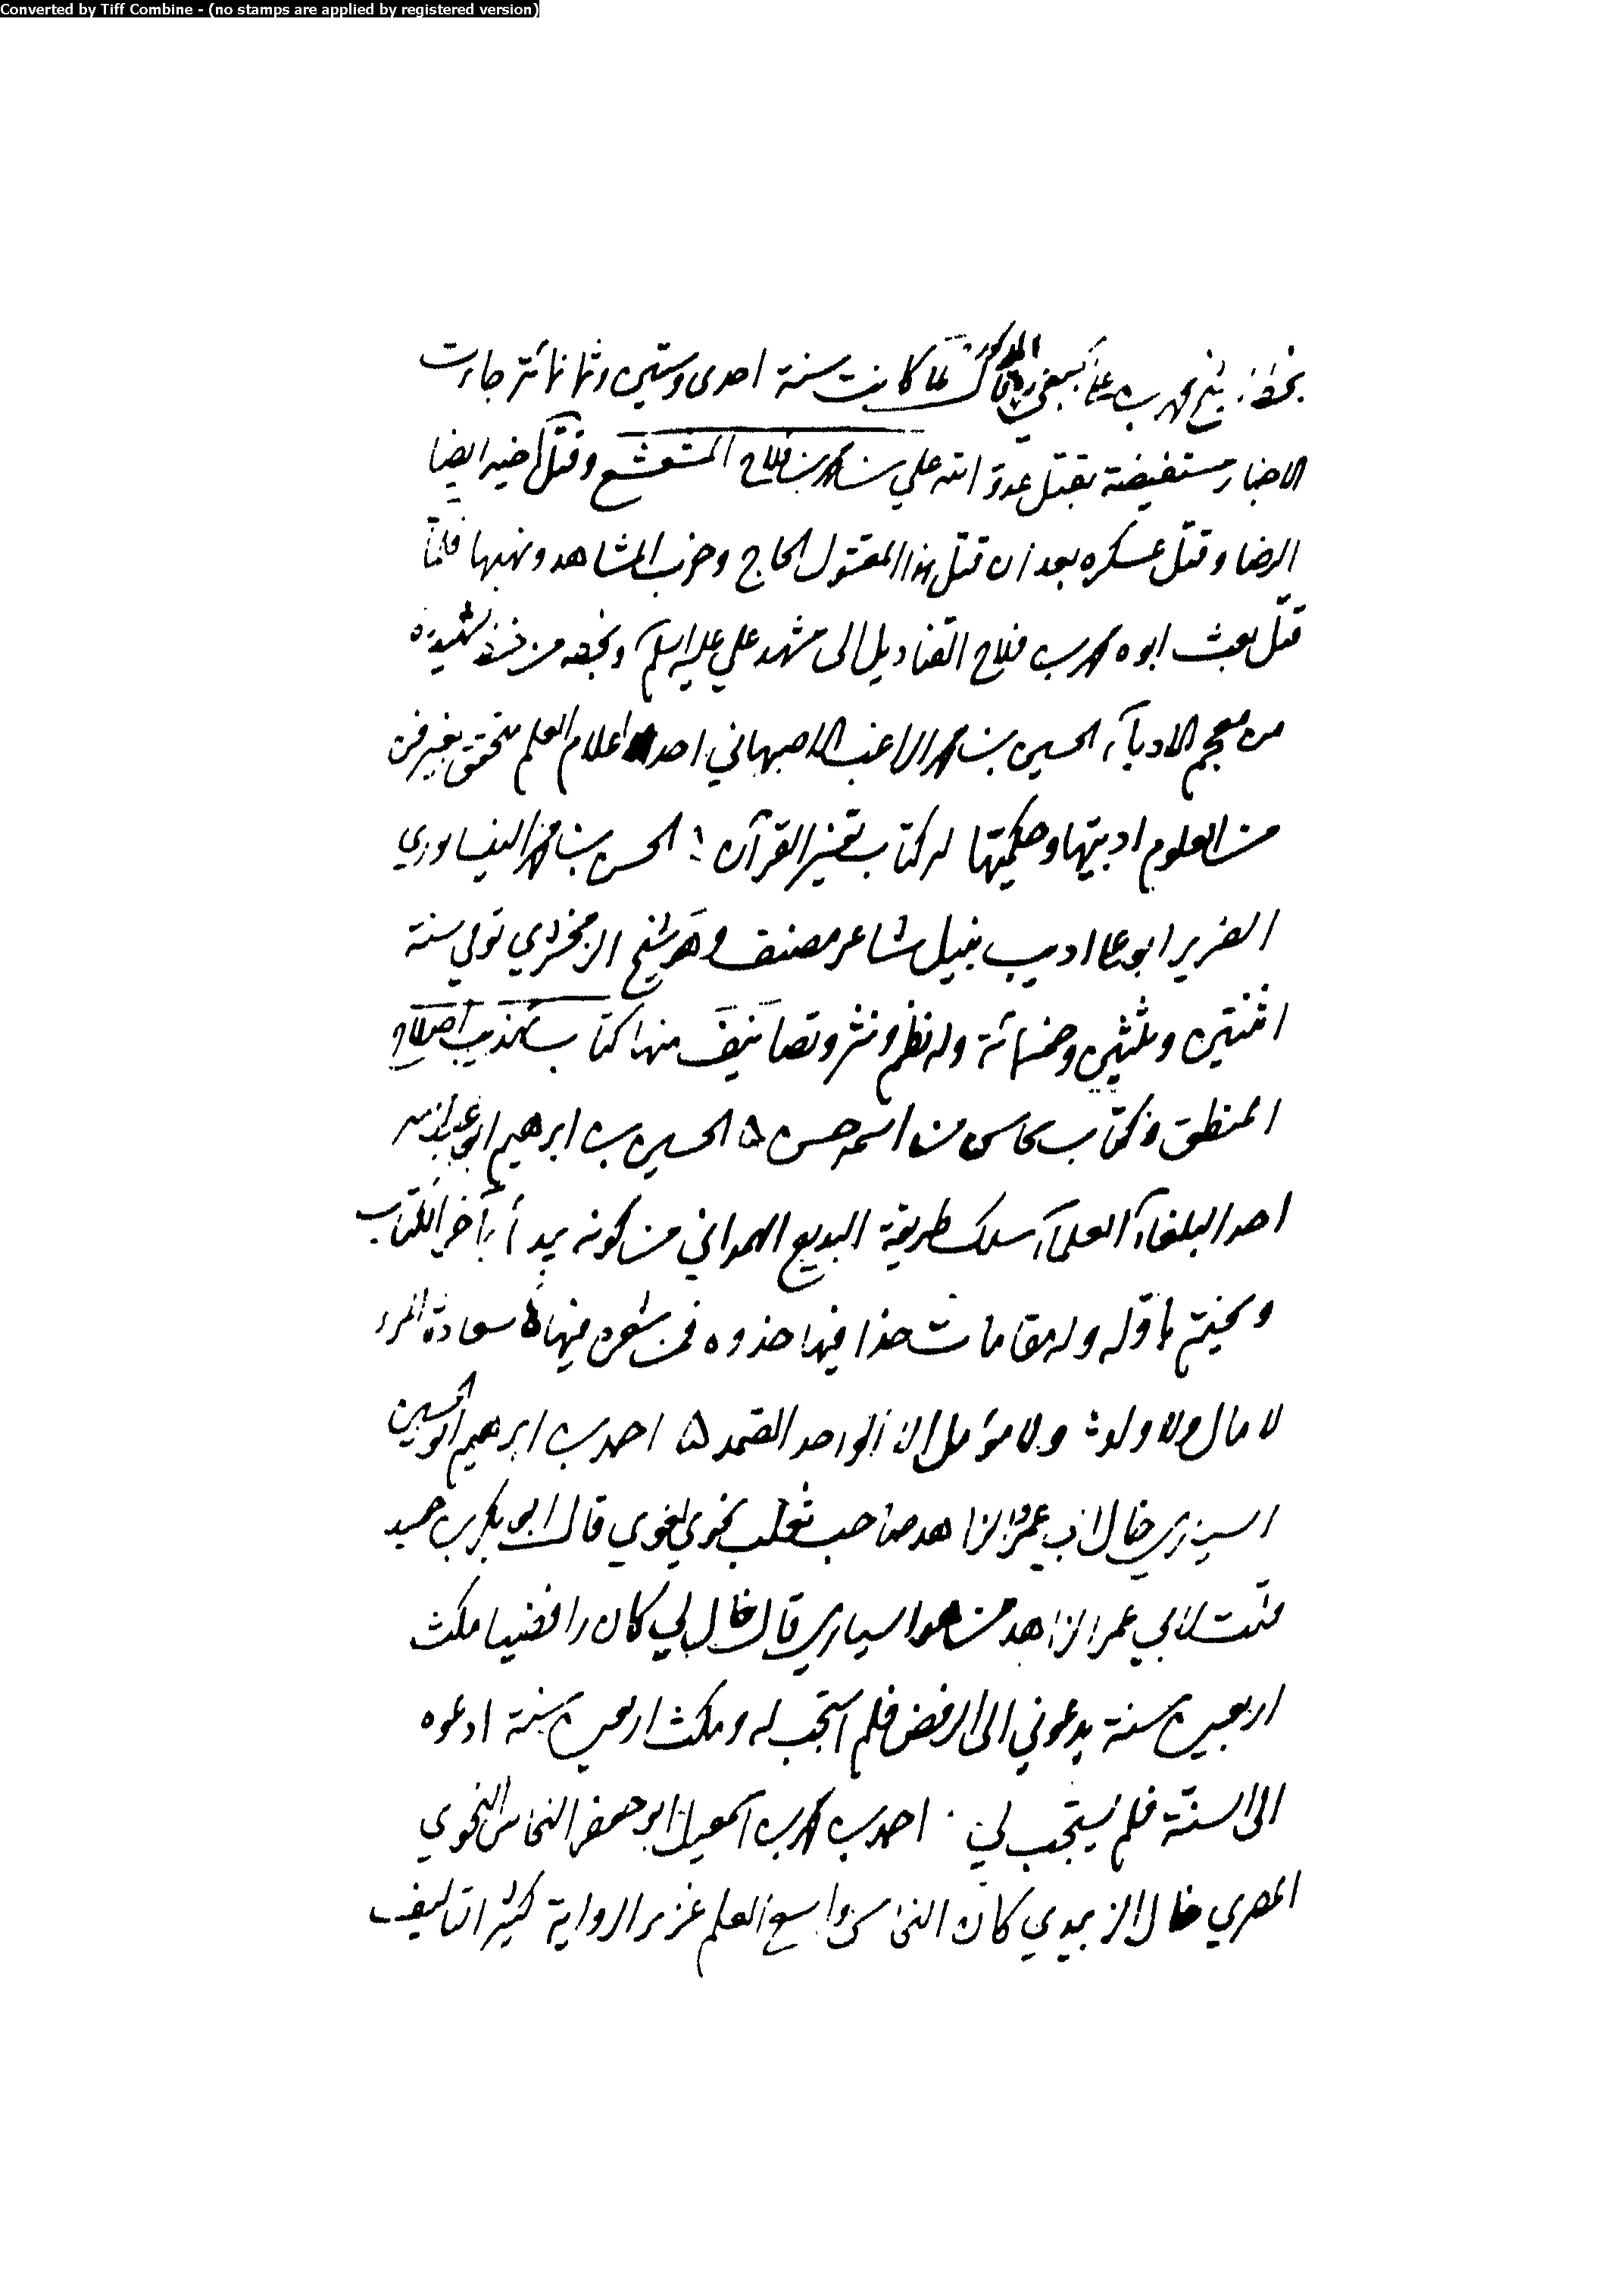 Converted by Tiff Combine - (no stamps are applied by registered version)
بخط الشيخ محمد بن علي الجبعي المذكور قال لما كانت سنة احدى وستين وثمانمائة جاءت
الاخبار مستفيضة بقتل عدو الله علي بن محمد بن فلاح المشعشع وقتل اخيه ايضا
الرضا وقتل عسكره بعد ان قتل هذا المقتول الحاج وخرب المشاهد ونهبها فلما
قتل بعث ابوه محمد بن فلاح القناديل الى مشهد علي عليه السلم وبخطه من خط الشهيد ره
من معجم الادباء الحسين بن محمد الراغب الاصبهاني احد اعلام العلم متحقق بغير فن
من العلوم ادبيتها وحكميتها له كتاب تفسير القرآن الحسن بن محمد النيسابوري
الضرير ابو علي اديب نبيل شاعر مصنف وهو شيخ الزمخشري توفي سنة
اثنتين وثلثين وخمسمائة وله نظم ونثر وتصانيف منها كتاب تهذيب اصلاح
المنطق وكتاب محاسن من اسمه حسن ه الحسين بن ابرهيم ابو عبدالله
احد البلغاء العلماء سلك طريقة البديع الهمداني من كونه يبدأ بآخر الكتاب
ويختم باوله وله مقامات حذا فيها حذوه فمن شعره فيها ه سعادة المرء
لا مال ولا ولد ولا مؤمل الا الواحد الصمد ه احمد بن ابرهيم ابو الحسين
السياري خال ابي عمر الزاهد صاحب ثعلب نحوي لغوي قال ابو بكر بن حميد
قلت لابي عمر الزاهد من هو السياري قال خال لي كان رافضيا مكث
اربعين سنة يدعوني الى الرفض فلم استجب له ومكثت اربعين سنة ادعوه
الى السنة فلم يستجب لي احمد بن محمد بن اسمعيل ابو جعفر النحاس النحوي
المصري قال الزبيدي كان النحاس واسع العلم غزير الرواية كثير التأليف